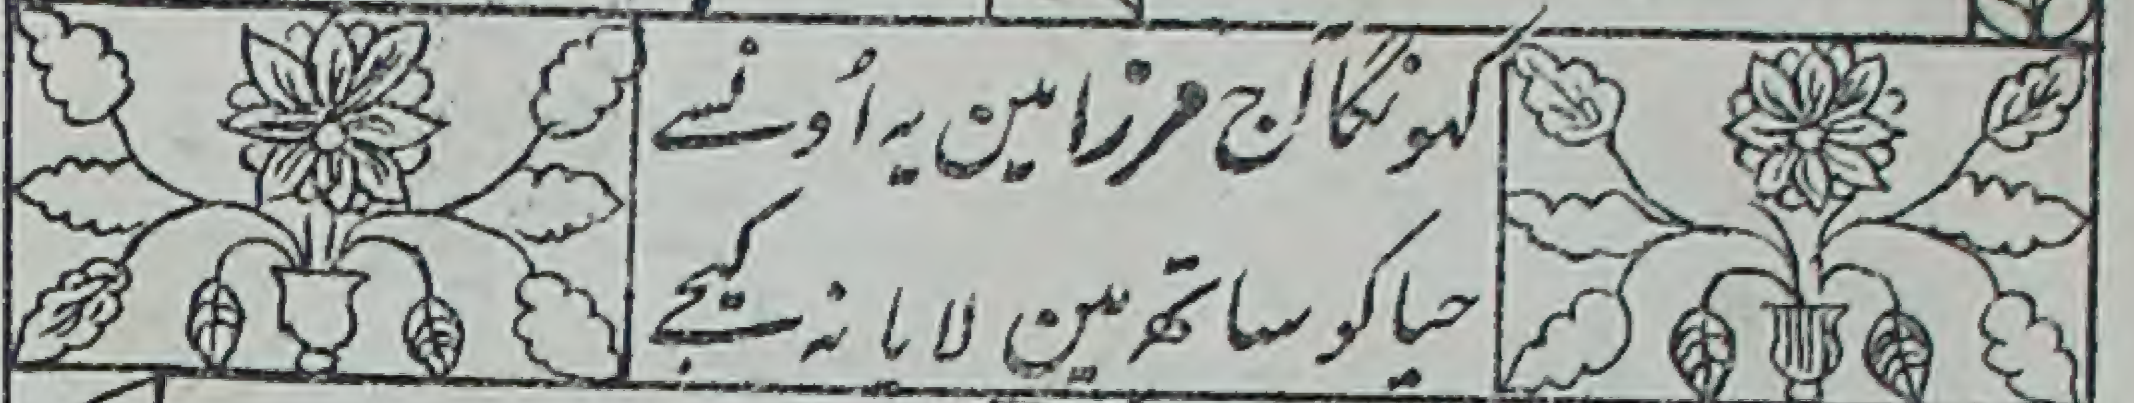 کہونگا آج مرزا مین یہ اُونسے
حیا کو ساتھ مین لایا نہ کیجے